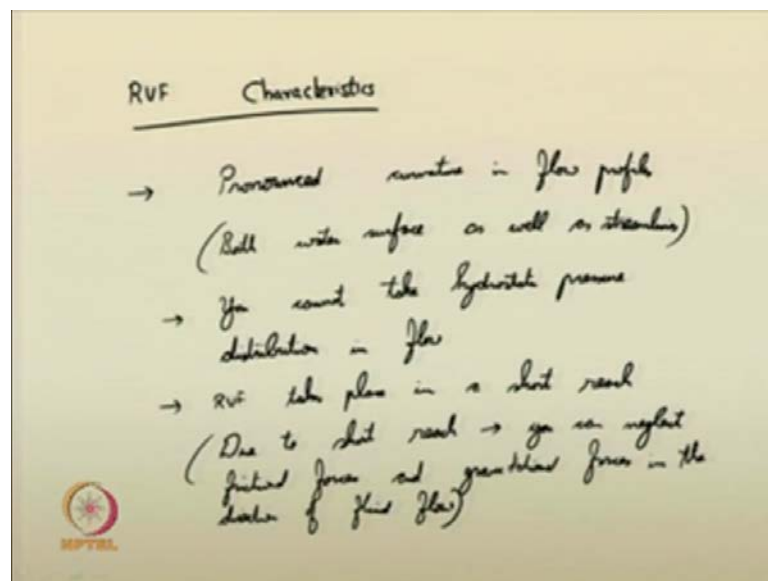 RVF Characteristics
→ Pronounced curvature in flow profile
(Both water surface as well as streamlines)
→ You cannot take hydrostatic pressure
distribution in flow
→ RVF takes place in a short reach
(Due to short reach → you can neglect
frictional forces and gravitational forces in the
direction of fluid flow)
NPTEL